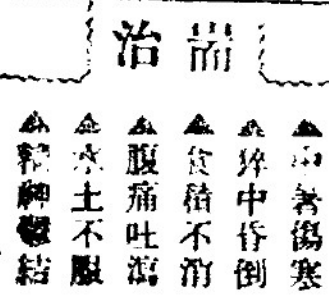 耑治
▲中暑傷寒
▲猝中昏倒
▲食積不消
▲腹痛吐瀉
▲水土不服
▲結